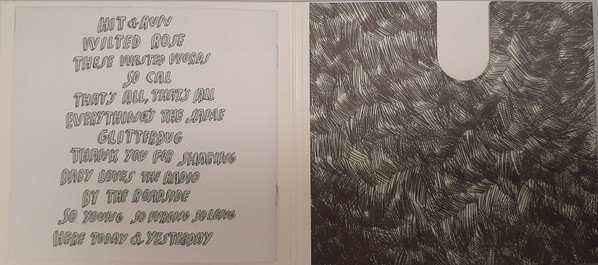 HIT & RUN
WILTED ROSE
THESE WASTED WORDS
SO CAL
THAT'S ALL, THAT'S ALL
EVERYTHING'S THE SAME
GLITTERBUG
THANK YOU FOR SHARING
BABY LOVES THE RADIO
BY THE ROADSIDE
SO YOUNG SO SO LONG
HERE TODAY & YESTERDAY